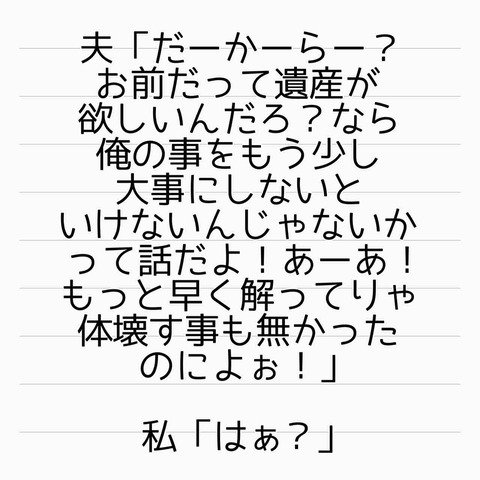 夫「だーかーらー？
お前だって遺産が
欲しいんだろ？なら
俺の事をもう少し
大事にしないと
いけないんじゃないか
って話だよ！あーあ！
もっと早く解ってりゃ
体壊す事も無かった
のによぉ！」
私「はぁ？」